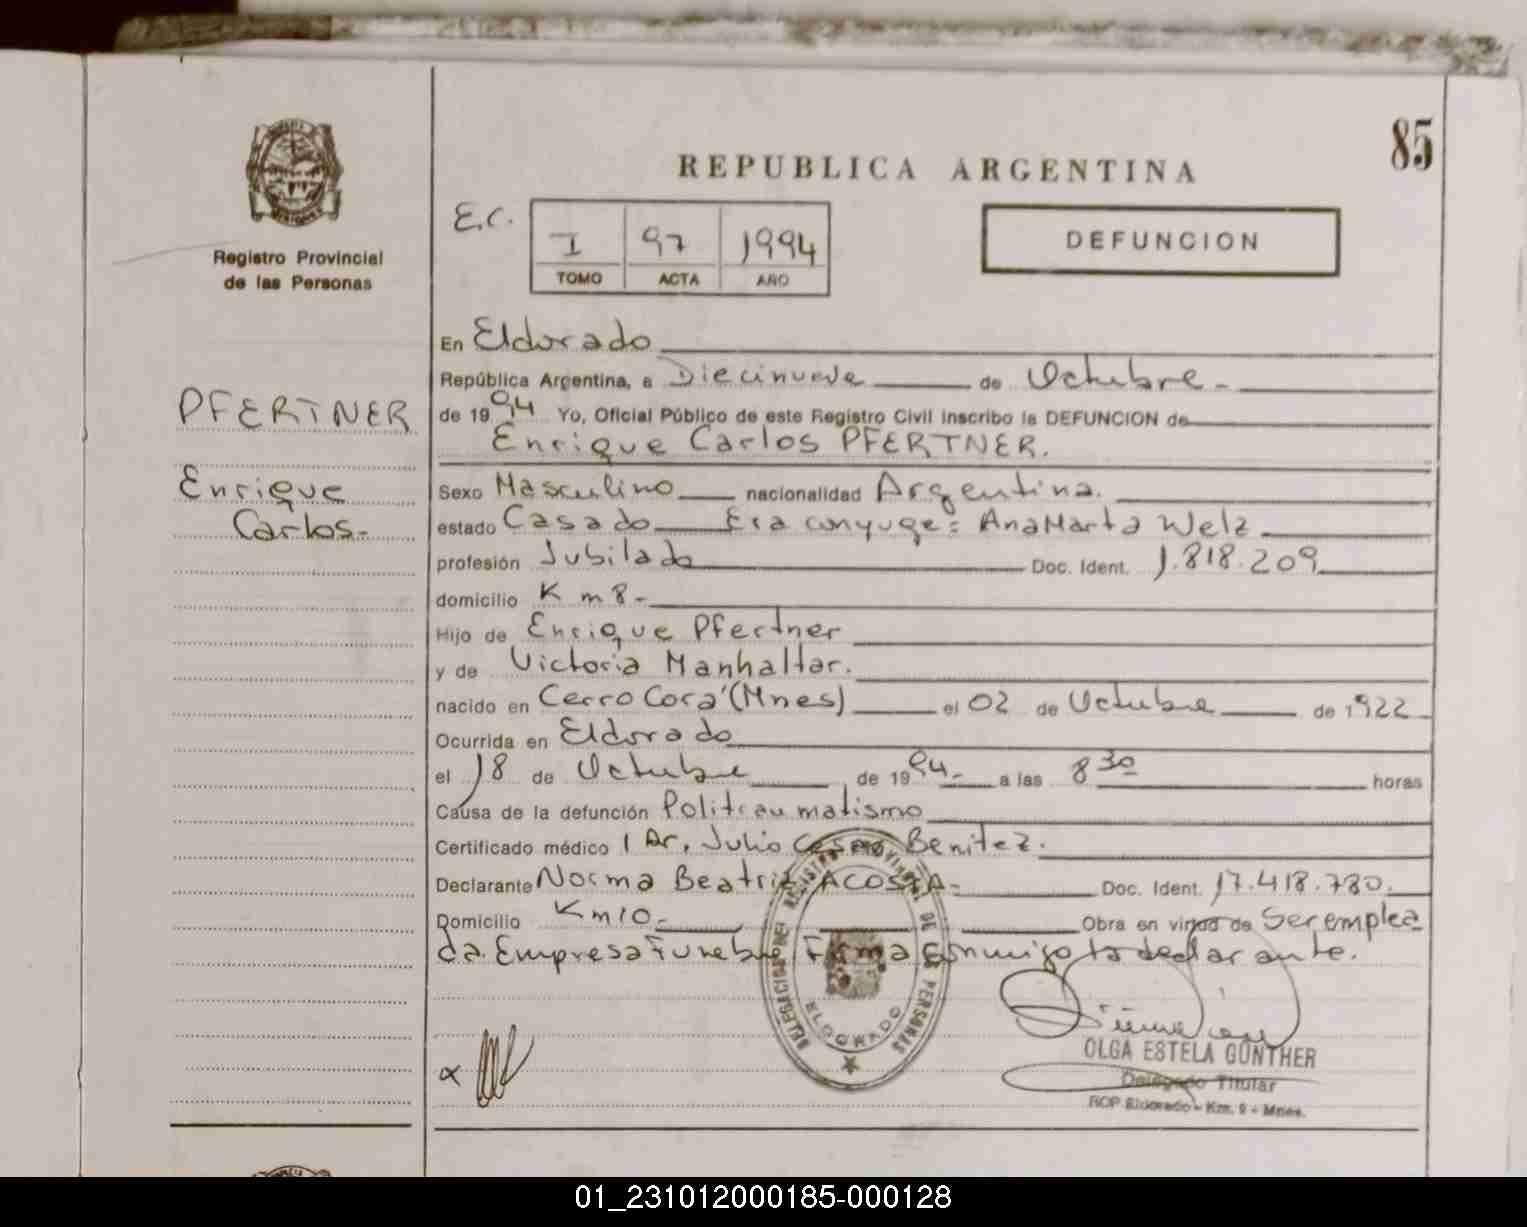 85
REPUBLICA ARGENTINA
E.C.
I 97 1994
TOMO ACTA AÑO
DEFUNCION
Registro Provincial
de las Personas
PFERTNER
Enrique
Carlos-
En Eldorado
República Argentina, a Diecinueve de Octubre-
de 1994 Yo, Oficial Público de este Registro Civil inscribo la DEFUNCION de
Enrique Carlos PFERTNER.
Sexo Masculino nacionalidad Argentina.
estado Casado Era conyuge = Ana Marta Welz
profesión Jubilado Doc. Ident. 1.818.209
domicilio Km 8-
Hijo de Enrique Pfertner
y de Victoria Manhaltar.
nacido en Cerro Corá (Mnes) el 02 de Octubre de 1922
Ocurrida en Eldorado
el 18 de Octubre de 1994- a las 8 30 horas
Causa de la defunción Politraumatismo
Certificado médico Dr. Julio Cesar Benitez.
Declarante Norma Beatriz ACOSTA- Doc. Ident. 17.418.780.
Domicilio Km 10- Obra en virtud de Ser emplea
da Empresa Funebre Firma conmigo la declarante.
DELEGACION DEL REGISTRO PROVINCIAL DE PERSONAS
ELDORADO
OLGA ESTELA GÜNTHER
Delegado Titular
RCP Eldorado - Km. 9 - Mnes.
01_231012000185-000128